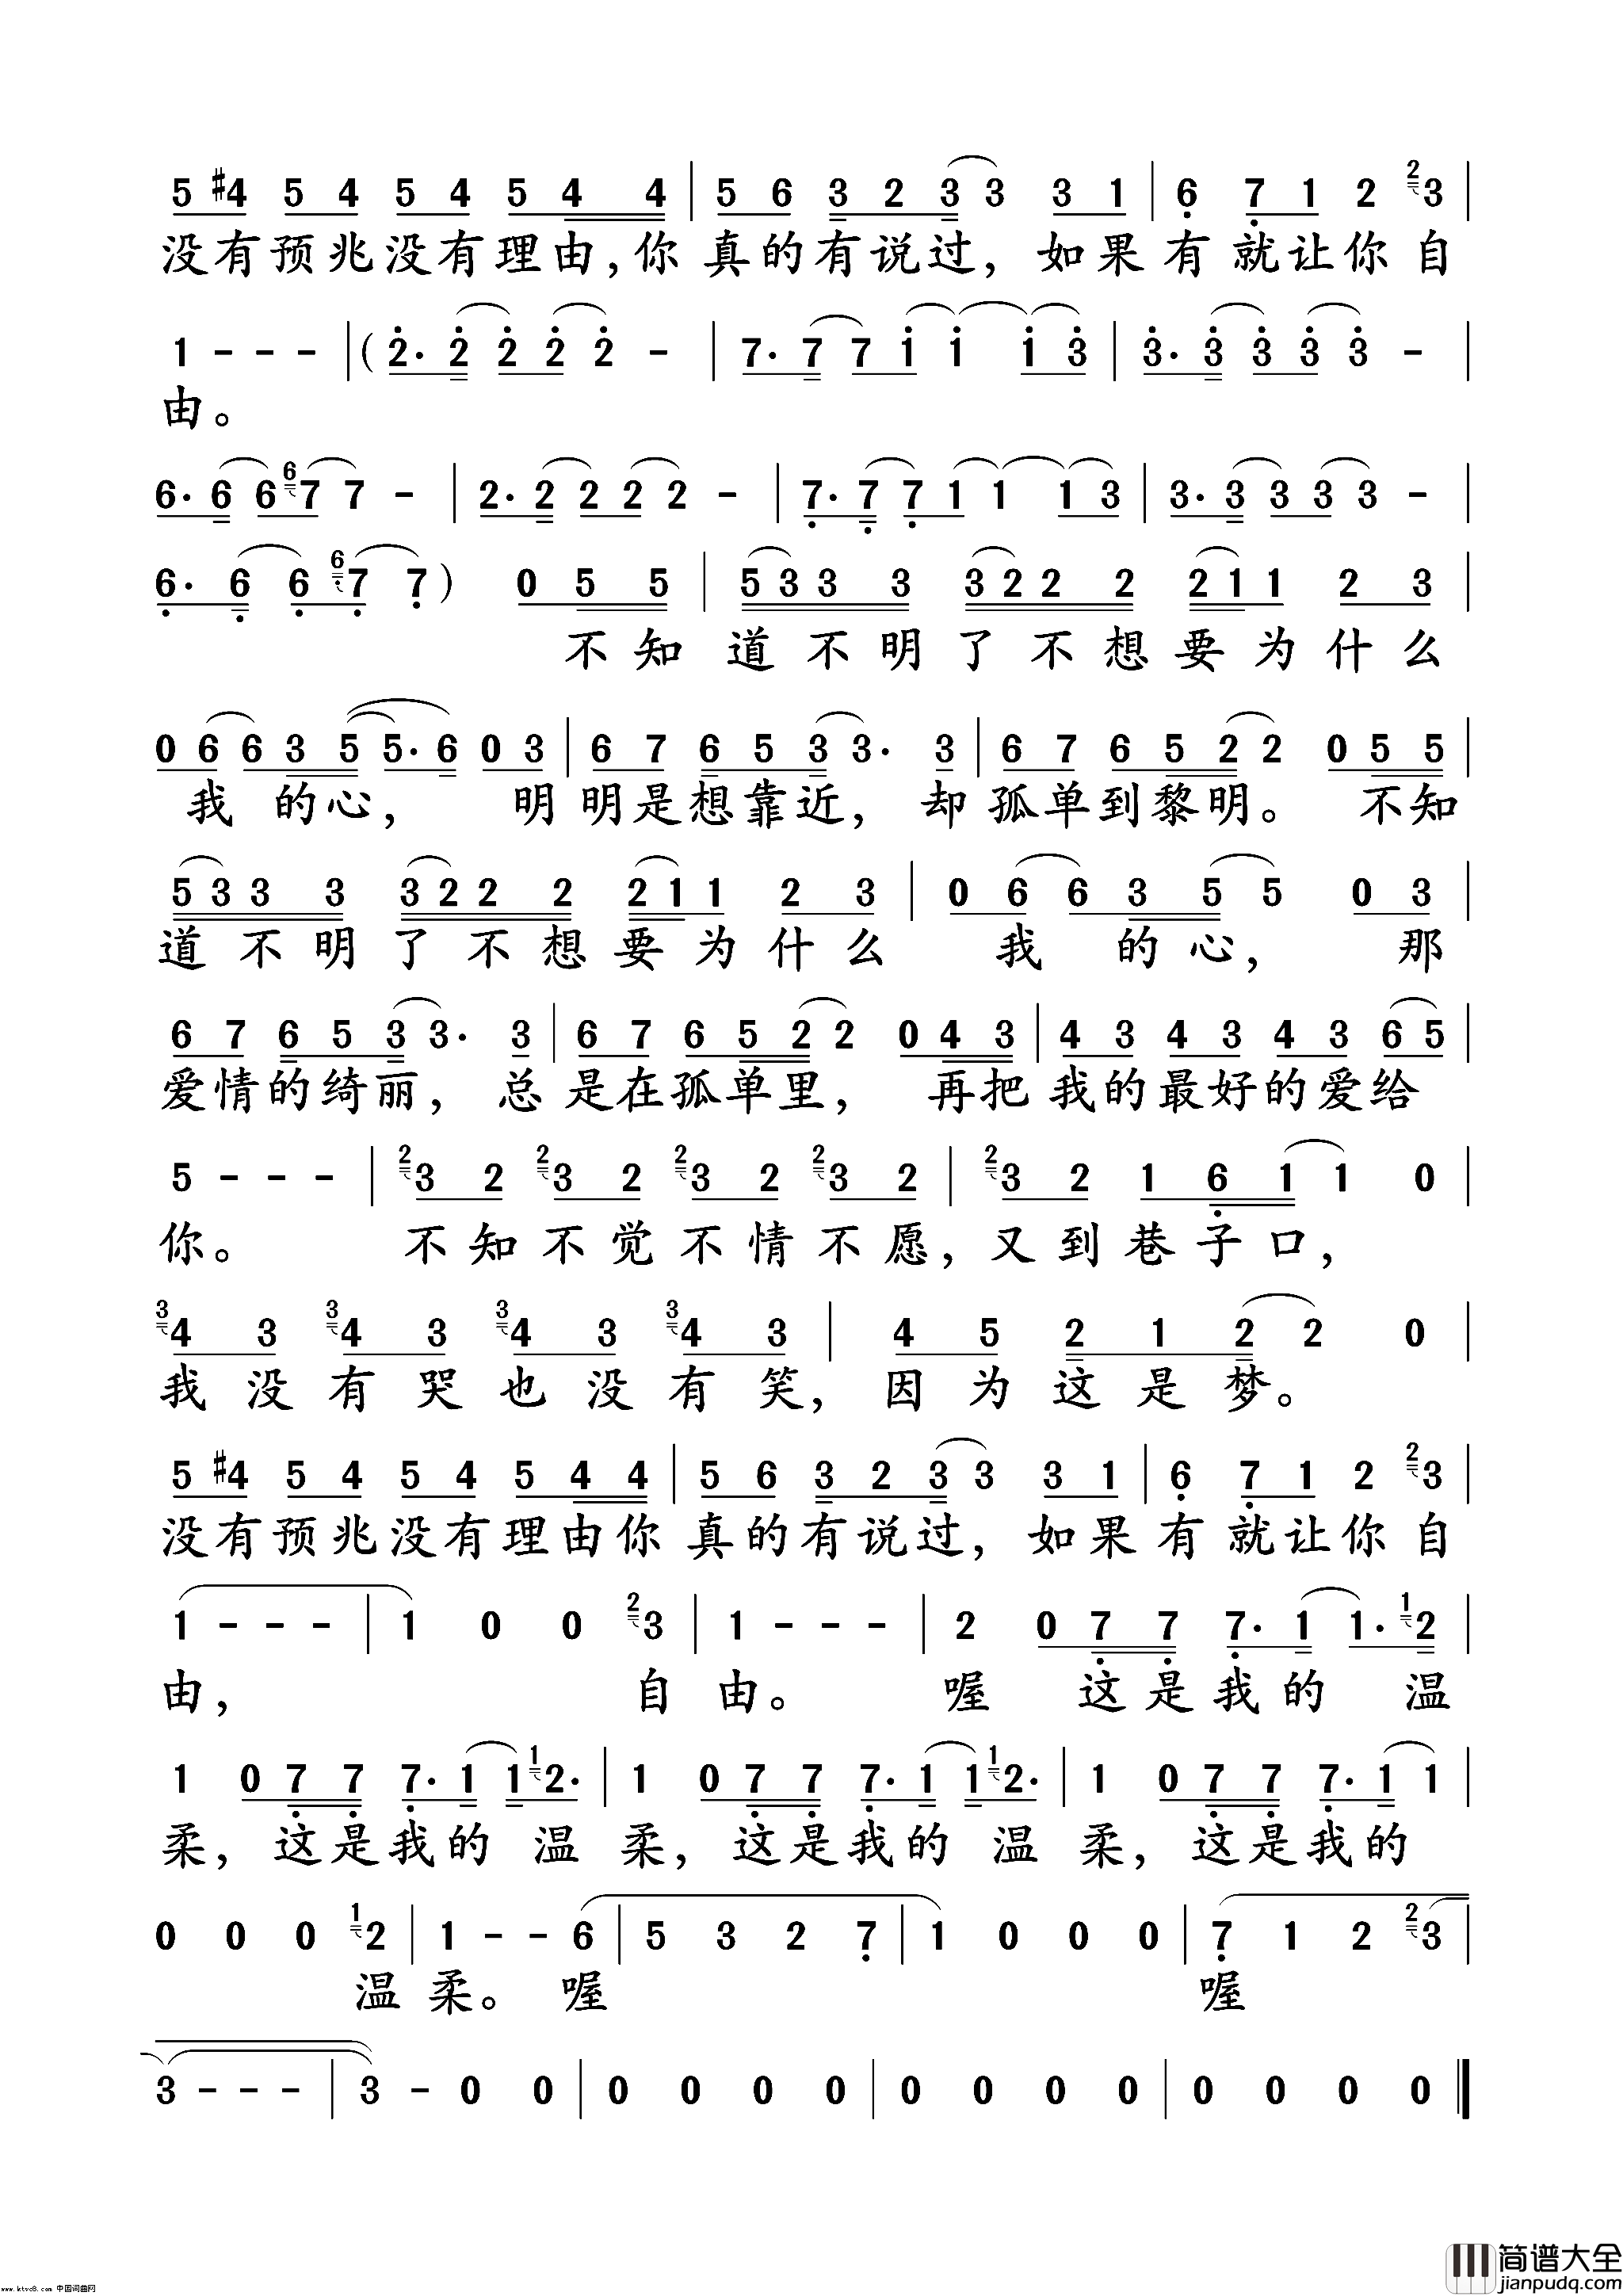 5 #4 5 4 5 4 5 4 4 | 5 6 3 2 3 3 3 1 | 6 7 1 2 2 3 |
没有预兆没有理由,你真的有说过,如果有就让你自
1 - - - | ( 2· 2 2 2 2 - | 7· 7 7 1 1 1 3 | 3· 3 3 3 3 - |
由。
6· 6 6 6 7 7 - | 2· 2 2 2 2 - | 7· 7 7 1 1 1 3 | 3· 3 3 3 3 - |
6· 6 6 6 7 7 ) 0 5 5 | 5 3 3 3 3 2 2 2 2 1 1 2 3 |
不知道不明了不想要为什么
0 6 6 3 5 5· 6 0 3 | 6 7 6 5 3 3· 3 | 6 7 6 5 2 2 0 5 5 |
我的心,明明是想靠近,却孤单到黎明。不知
5 3 3 3 3 2 2 2 2 1 1 2 3 | 0 6 6 3 5 5 0 3 |
道不明了不想要为什么我的心,那
6 7 6 5 3 3· 3 | 6 7 6 5 2 2 0 4 3 | 4 3 4 3 4 3 6 5 |
爱情的绮丽,总是在孤单里,再把我的最好的爱给
5 - - - | 2 3 2 2 3 2 2 3 2 2 3 2 | 2 3 2 1 6 1 1 0 |
你。不知不觉不情不愿,又到巷子口,
3 4 3 3 4 3 3 4 3 3 4 3 | 4 5 2 1 2 2 0 |
我没有哭也没有笑,因为这是梦。
5 #4 5 4 5 4 5 4 4 | 5 6 3 2 3 3 3 1 | 6 7 1 2 2 3 |
没有预兆没有理由你真的有说过,如果有就让你自
1 - - - | 1 0 0 2 3 | 1 - - - | 2 0 7 7 7· 1 1· 1 2 |
由,自由。喔这是我的温
1 0 7 7 7· 1 1 1 2· | 1 0 7 7 7· 1 1 1 2· | 1 0 7 7 7· 1 1 |
柔,这是我的温柔,这是我的温柔,这是我的
0 0 0 1 2 | 1 - - 6 | 5 3 2 7 | 1 0 0 0 | 7 1 2 2 3 |
温柔。喔喔
3 - - - | 3 - 0 0 | 0 0 0 0 | 0 0 0 0 | 0 0 0 0 ‖
www.ktvc8.com 中国词曲网
简谱大全
jianpudq.com